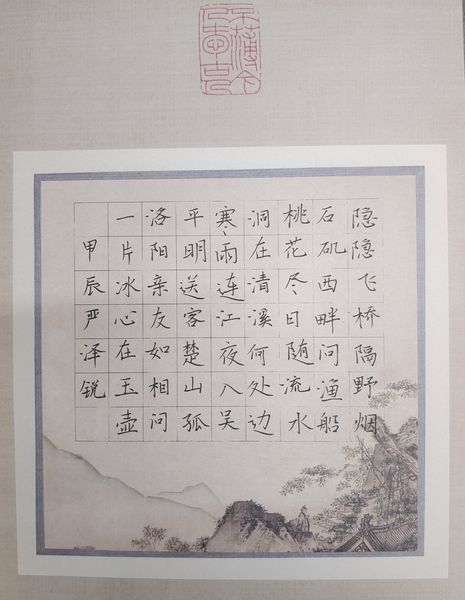 隐隐飞桥隔野烟
石矶西畔问渔船
桃花尽日随流水
洞在清溪何处边
寒雨连江夜入吴
平明送客楚山孤
洛阳亲友如相问
一片冰心在玉壶
甲辰严泽锐